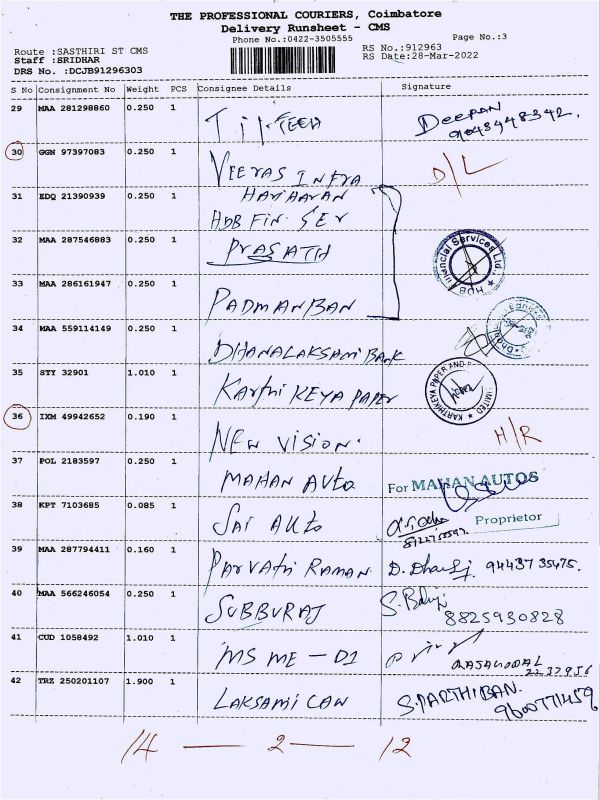 THE PROFESSIONAL COURIERS, Coimbatore
Delivery Runsheet - CMS
Phone No.:0422-3505555
Page No.:3
Route :SASTHIRI ST CMS
RS No.:912963
Staff :SRIDHAR
RS Date:28-Mar-2022
DRS No. :DCJB91296303
S No Consignment No Weight PCS Consignee Details Signature
29 MAA 281298860 0.250 1 Til-TECH DEEPAN
9043448342.
30 GGN 97397083 0.250 1 VEERAS INFRA D/L
31 EDQ 21390939 0.250 1 HARIHARAN
HDB FIN. SER
32 MAA 287546883 0.250 1 PRASATH HDB Financial Services Ltd.
33 MAA 286161947 0.250 1 PADMANBAN
34 MAA 559114149 0.250 1 DHANALAKSAMI BANK
35 STY 32901 1.010 1 KARTHI KEYA PAPER KARTHIKEYA PAPER AND
36 IXM 49942652 0.190 1 NEW VISION. H/R
37 POL 2183597 0.250 1 MAHAN AUTO For MAHAN AUTOS
38 KPT 7103685 0.085 1 SAI AUTO Proprietor
39 MAA 287794411 0.160 1 PARVATHI RAMAN. 94437 35475.
40 MAA 566246054 0.250 1 SUBBURAJ 8825930828
41 CUD 1058492 1.010 1 MS ME - D1 RAJAGOPAL
2237956
42 TRZ 250201107 1.900 1 LAKSAMI CAW S.PARTHIBAN.
9600771459
14 — 2 — 12